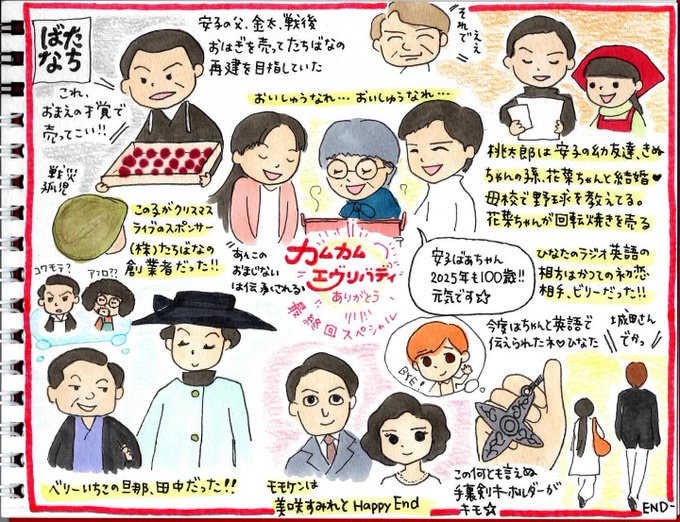 たちばな
安子の父、金太、戦後
おはぎを売ってたちばなの
再建を目指していた
これ、
おまえの才覚で
売ってこい!!
それでええ
おいしゅうなれ…おいしゅうなれ…
桃太郎は安子の幼友達、きぬ
ちゃんの孫、花菜ちゃんと結婚♥
母校で野球を教えてる。
花菜ちゃんが回転焼きを売る
戦災
孤児
この子がクリスマス
ライブのスポンサー
(株)たちばなの
創業者だった!!
あんこの
おまじない
は伝承される
カムカム
エヴリバディ
ありがとう
最終回スペシャル
安子ばあちゃん
2025年も100歳!!
元気です☆
ひなたのラジオ英語の
相方はかつての初恋
相手、ビリーだった!!
コワモテ?
アフロ??
BYE!
今度はちゃんと英語で
伝えられたネ♥ひなた
城田さん
でか。
ベリーいちこの旦那、田中だった!!
モモケンは
美咲すみれとHappy End
この何とも言えぬ
手裏剣キーホルダーが
キモ☆
END-